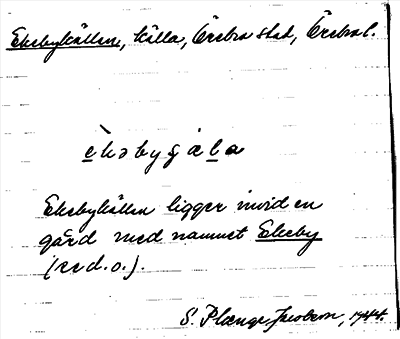 Ekebykällan, källa, Örebro stad, Örebro l.
èkəbyɕäla
Ekebykällan ligger invid en
gård med namnet Ekeby
(se d. o.).
S. Plænge Jacobson, 1944.